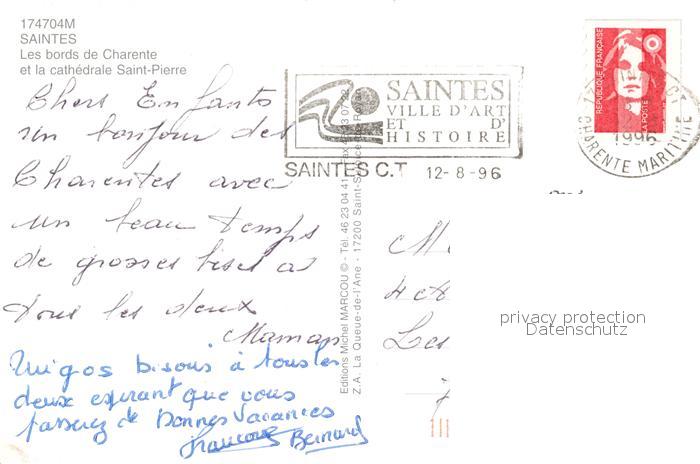 174704M
SAINTES
Les bords de Charente
et la cathédrale Saint-Pierre
Chers Enfants
un bonjour des
Charentes avec
un beau temps
de grosses bises a
tous les deux
Maman
un gos bisous à tous les
deux esperant que vous
passerez de bonnes vacances
Francoise Bernard
SAINTES
VILLE D'ART
ET D'
HISTOIRE
SAINTES C.T 12-8-96
RÉPUBLIQUE FRANÇAISE
LA POSTE
1996
CHARENTE MARITIME
Editions Michel MARCOU © - Tél. 46 23 04 41
Z.A. La Queue-de-l'Ane - 17200 Saint-Sulpice-de-Royan
M
4
Les
privacy protection
Datenschutz